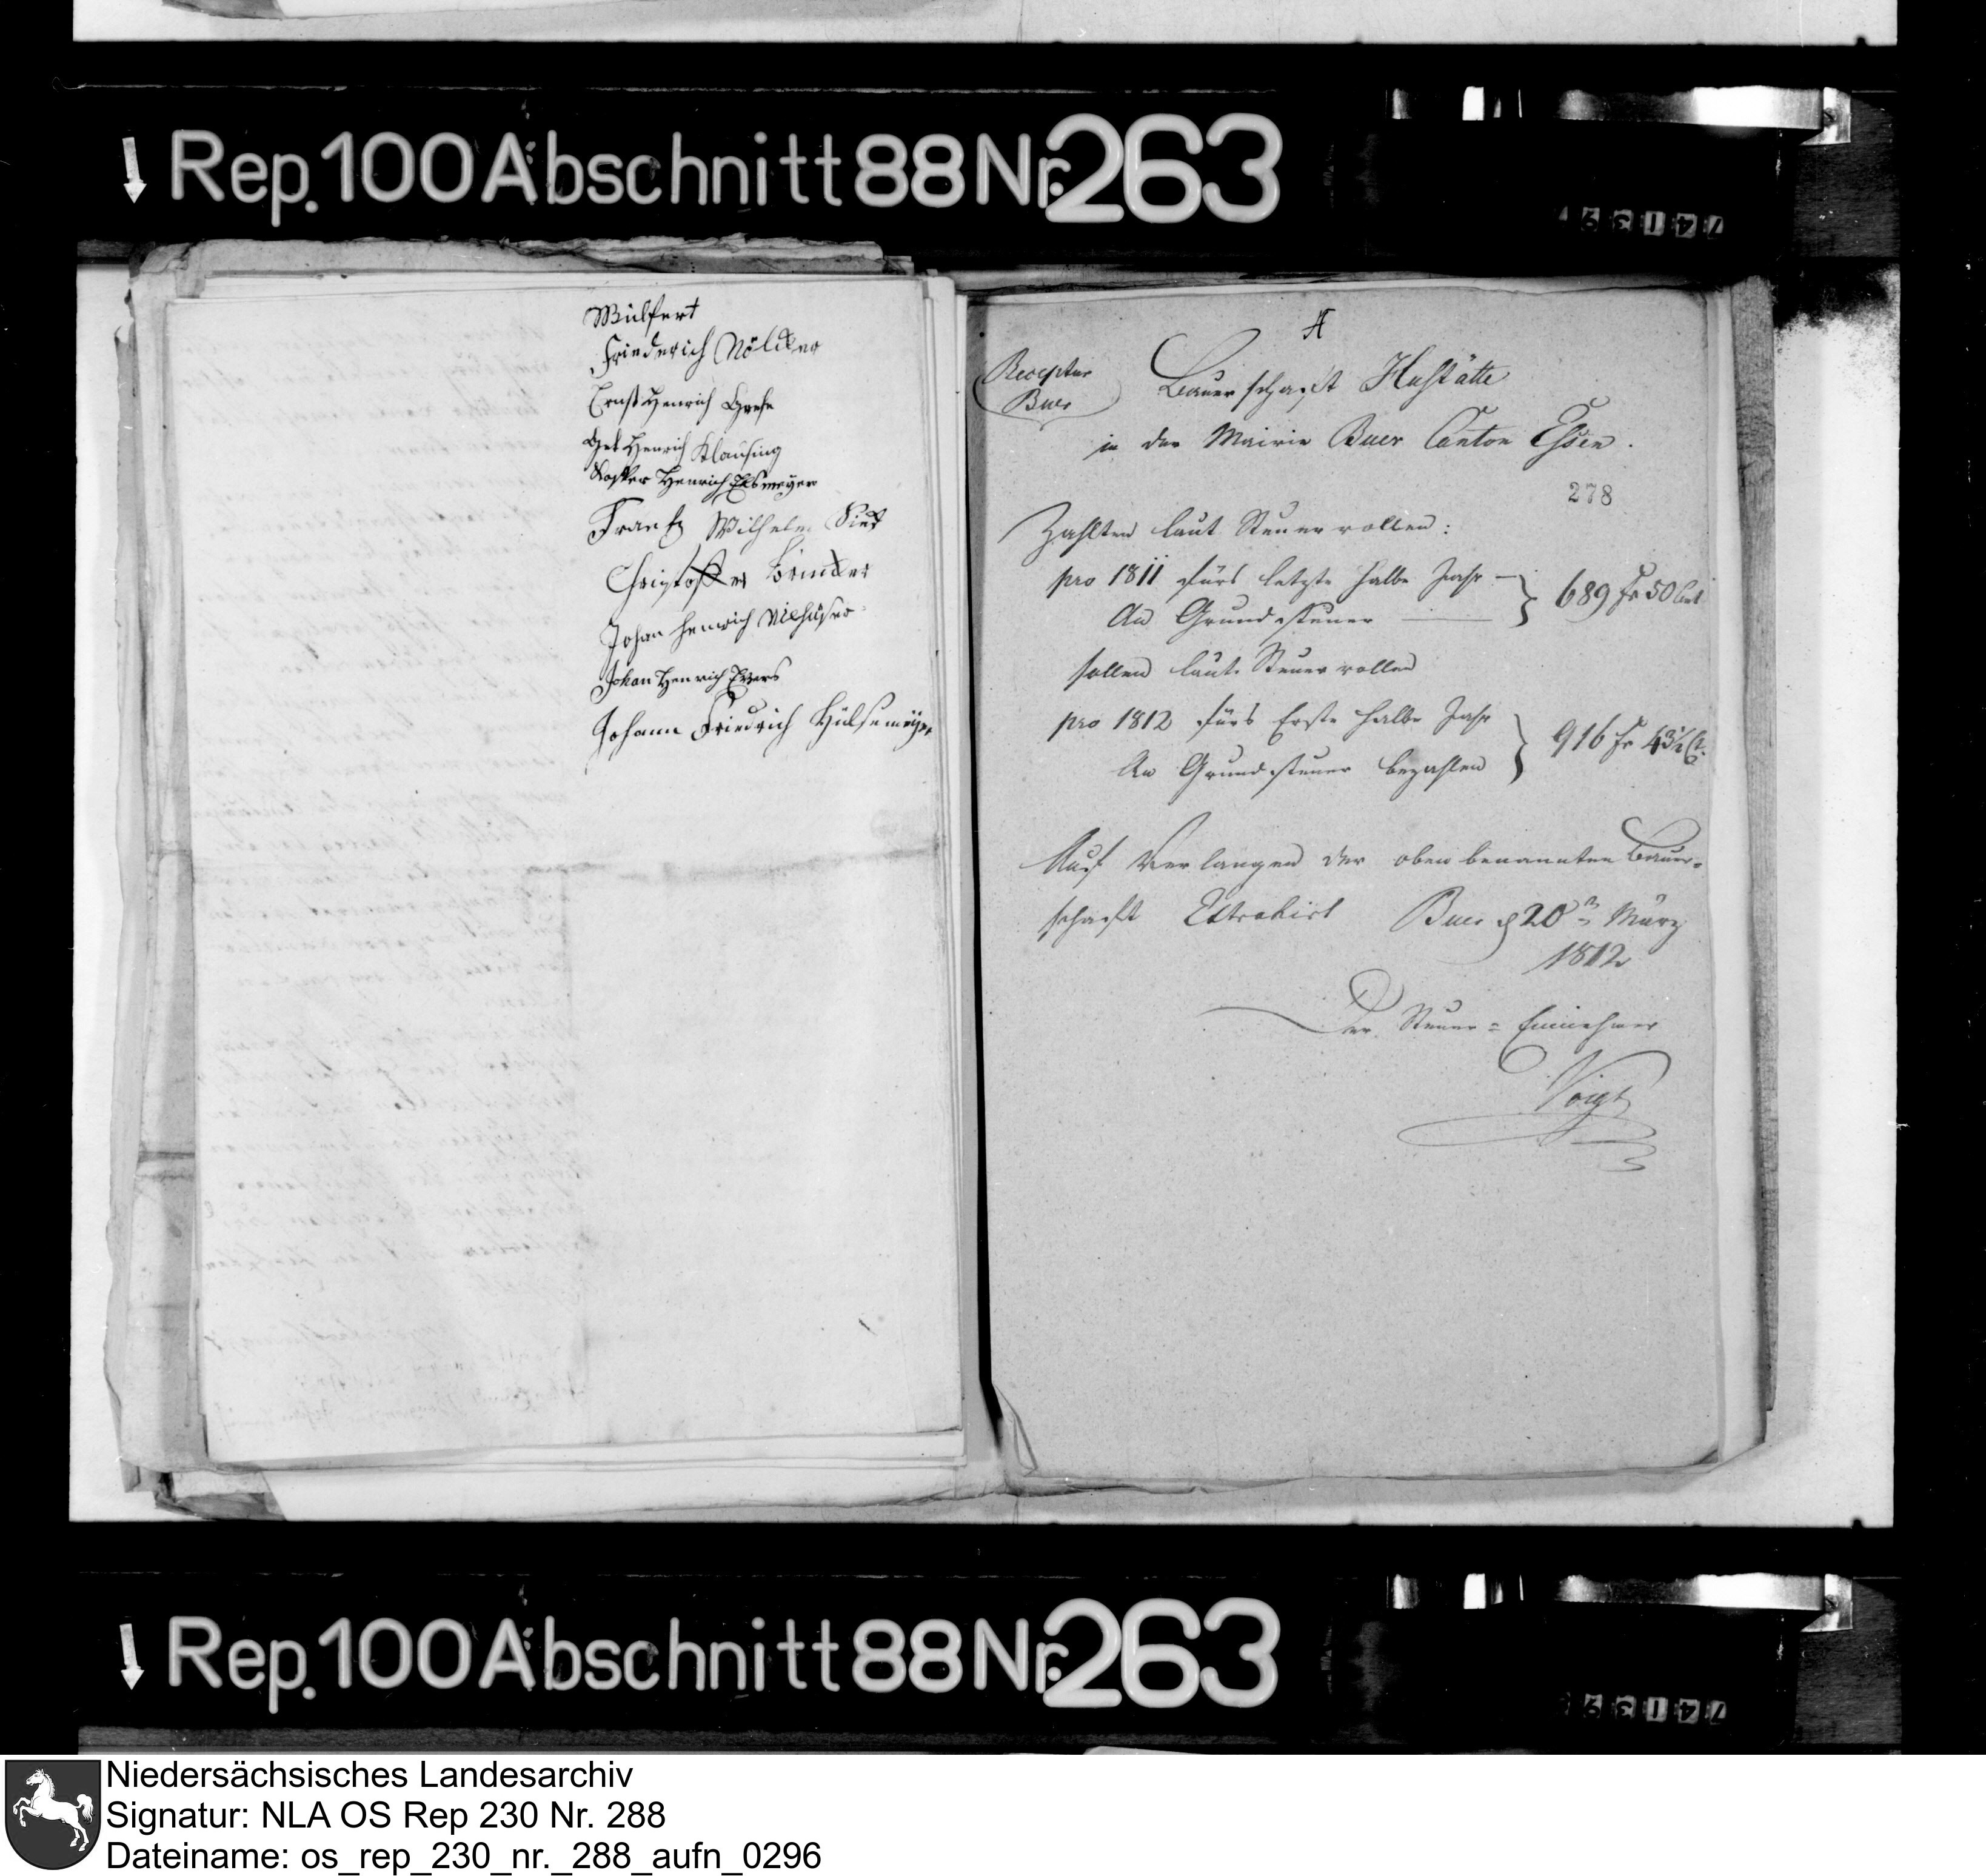 Rep. 100 Abschnitt 88 Nr. 263
Wülfert
Friederich Nölcker
Ernst Henrich Grefe
Henrich Klausing
Henrich Elsmeyer
Frantz Wilhelm
Christoffer Brincker
Johan Henrich Niehüser
Johan Henrich Evers
Johann Friedrich Hülsemeyer
A
Receptur
Buer
Bauerschaft Hustätte
in der Mairie Buer Canton Essen.
278
Zahlten laut Steuerrollen:
pro 1811 fürs letzte halbe Jahr
An Grundsteuer
689 fr 50 Cent
sollen laut Steuerrollen
pro 1812 fürs Erste halbe Jahr
An Grundsteuer bezahlen
916 fr 43½ Ct.
Auf Verlangen der obenbenannten Bauer-
schaft Extrahirt Buer d 20n März
1812
Der Steuer-Einnehmer
Voigt
Rep. 100 Abschnitt 88 Nr. 263
Niedersächsisches Landesarchiv
Signatur: NLA OS Rep 230 Nr. 288
Dateiname: os_rep_230_nr._288_aufn_0296